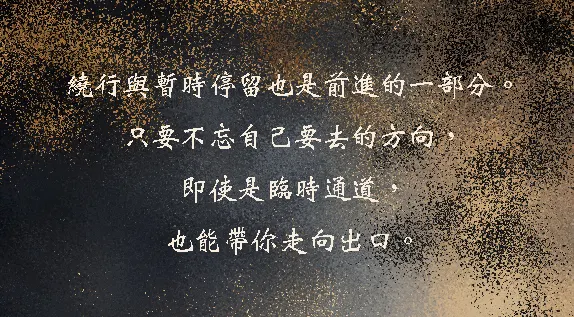 繞行與暫時停留也是前進的一部分。
只要不忘自己要去的方向，
即使是臨時通道，
也能帶你走向出口。